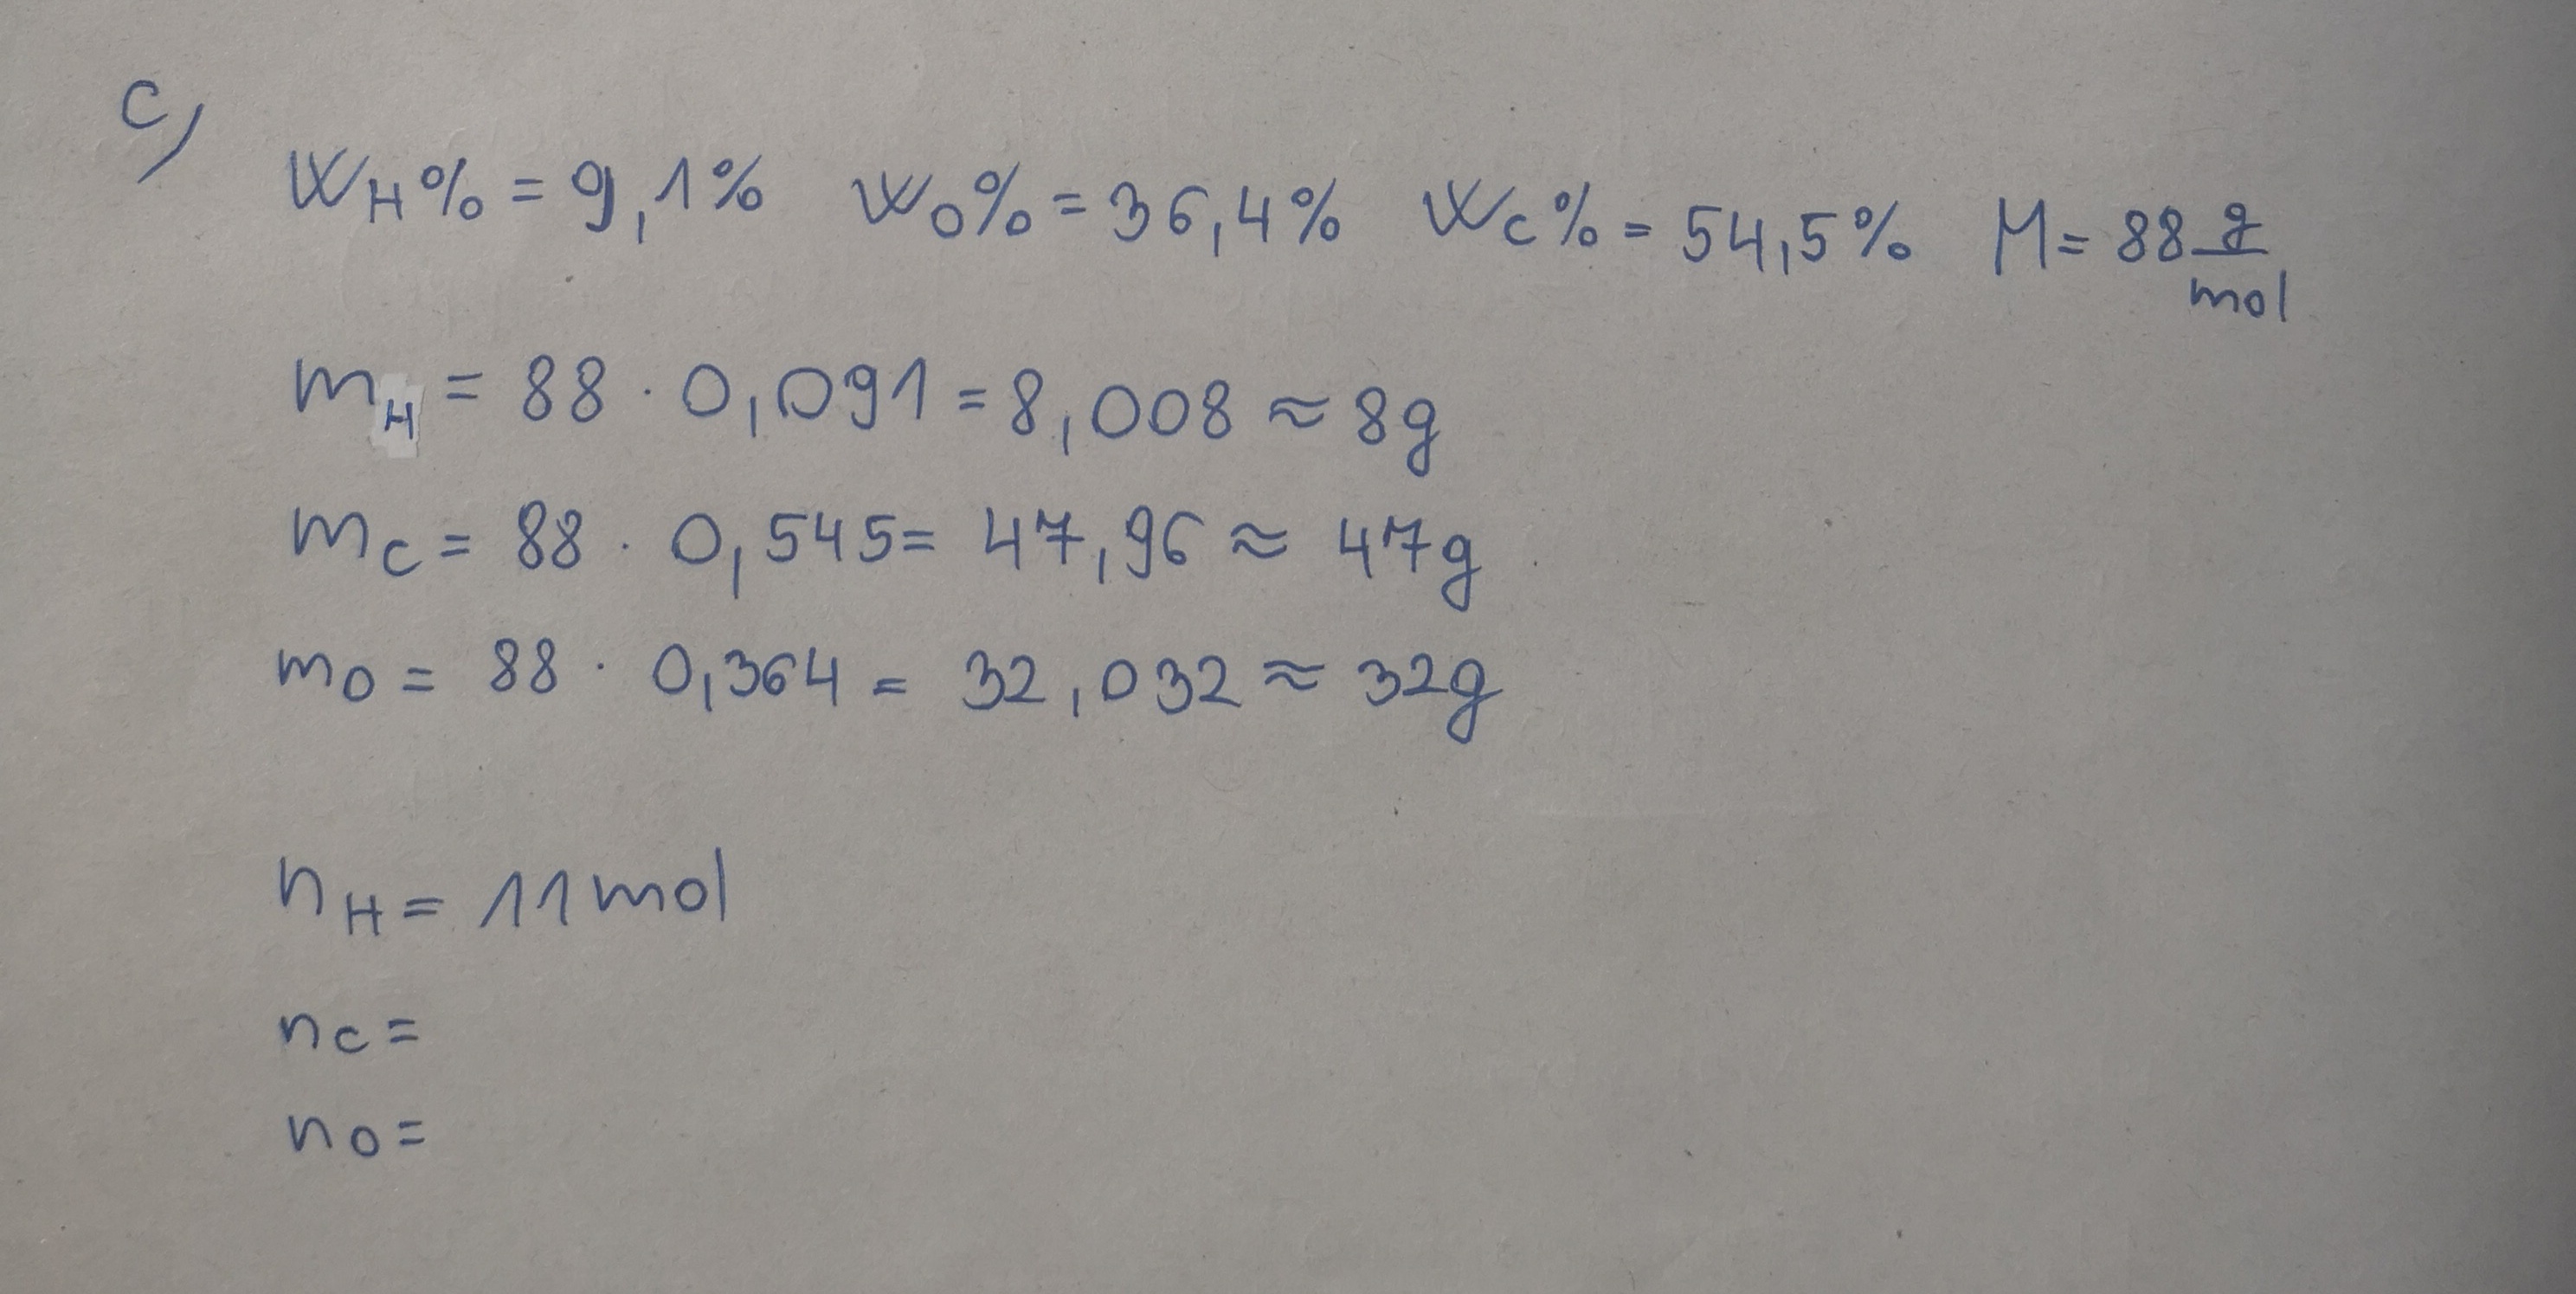 c)
W_H% = 9,1% W_O% = 36,4% W_C% = 54,5% M = 88 g/mol
m_H = 88 · 0,091 = 8,008 ≈ 8g
m_C = 88 · 0,545 = 47,96 ≈ 47g
m_O = 88 · 0,364 = 32,032 ≈ 32g
n_H = 11 mol
n_C =
n_O =